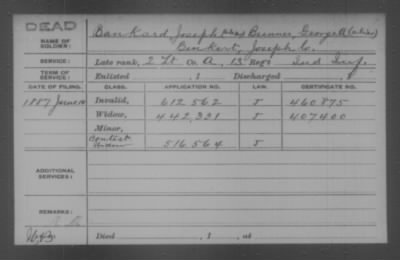 DEAD
NAME OF SOLDIER: Bankard, Joseph (alias) Brunner, George A (alias)
Binkert, Joseph C.
SERVICE: Late rank, 2 Lt Co. A, 13 Reg't Ind Inf.
TERM OF SERVICE: Enlisted , 1 Discharged , 1
DATE OF FILING. CLASS. APPLICATION NO. LAW. CERTIFICATE NO.
1887 June Invalid, 612,562 460,875
Widow, 442,331 407400
Minor,
Contest Widow 516,564
ADDITIONAL SERVICES:
REMARKS:
Died , 1 , at